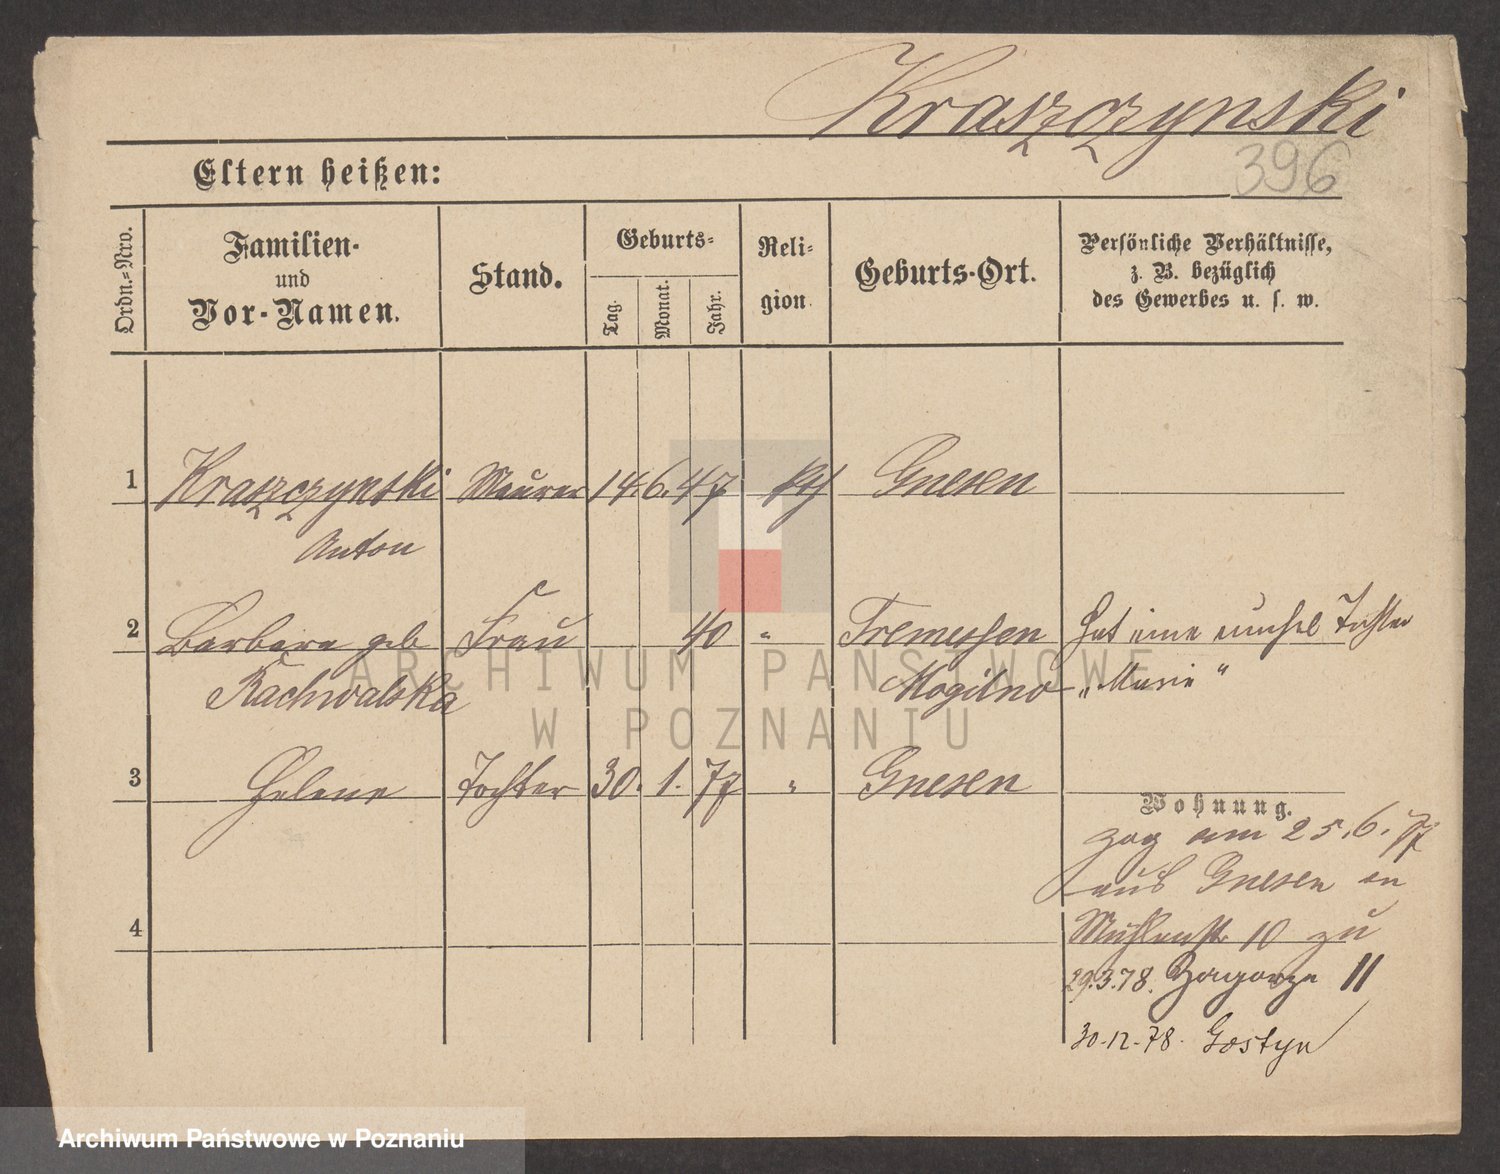 Kraszczynski
396
Eltern heißen:
Ordn.-Nro.
Familien-
und
Vor-Namen.
Stand.
Geburts-
Tag.
Monat.
Jahr.
Reli-
gion.
Geburts-Ort.
Persönliche Verhältnisse,
z. B. bezüglich
des Gewerbes u. s. w.
1 Kraszczynski Maurer 14. 6. 47 kth Gnesen
Anton
2 Barbara geb Frau 40 " Tremessen Hat eine unehel Tochter
Rachwalska Mogilno "Marie"
ARCHIWUM PAŃSTWOWE
W POZNANIU
3 Helene Tochter 30. 1. 77 " Gnesen
Wohnung.
zog am 25.6.77
aus Gnesen in
4 Mühlenstr 10 zu
29.3.78. Zagorze 11
30-12-78. Gostyn
Archiwum Państwowe w Poznaniu